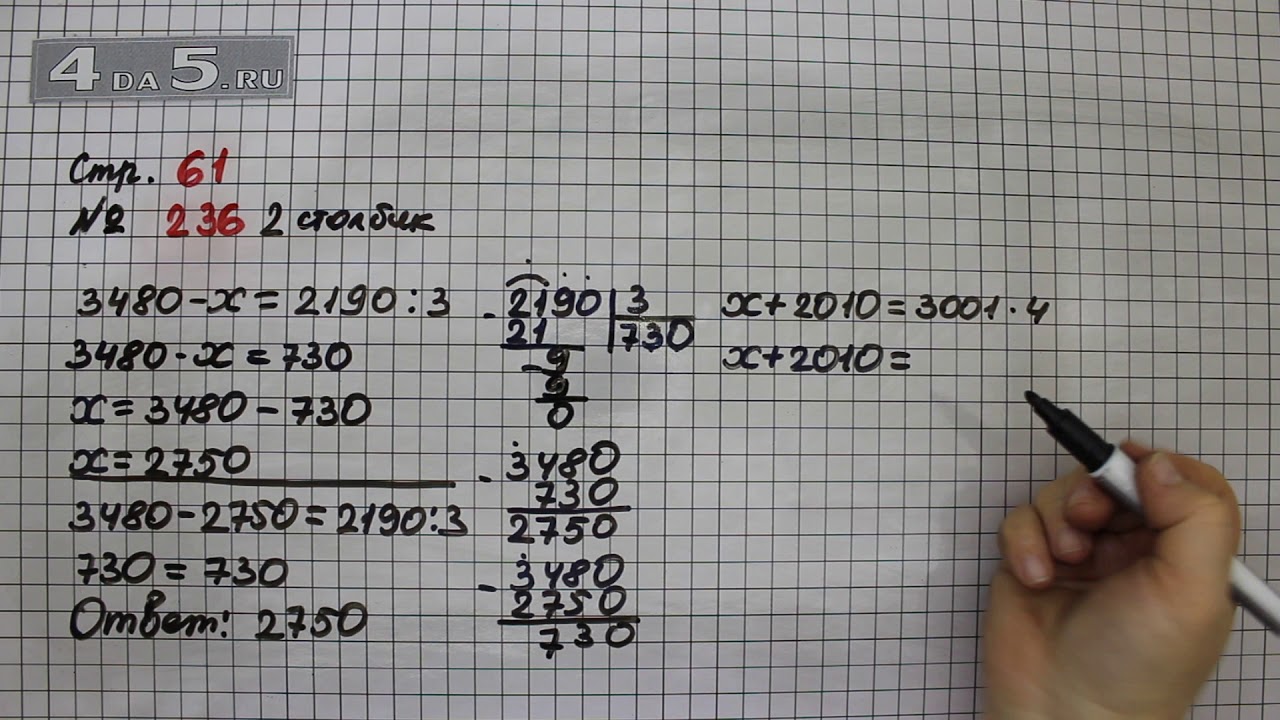 4DA5.RU
Стр. 61
№ 236 2 столбик
3480-x=2190:3
3480-x=730
x=3480-730
x=2750
3480-2750=2190:3
730=730
Ответ: 2750
-2190|3
21|730
-9
9
0
-3480
730
2750
-3480
2750
730
x+2010=3001·4
x+2010=